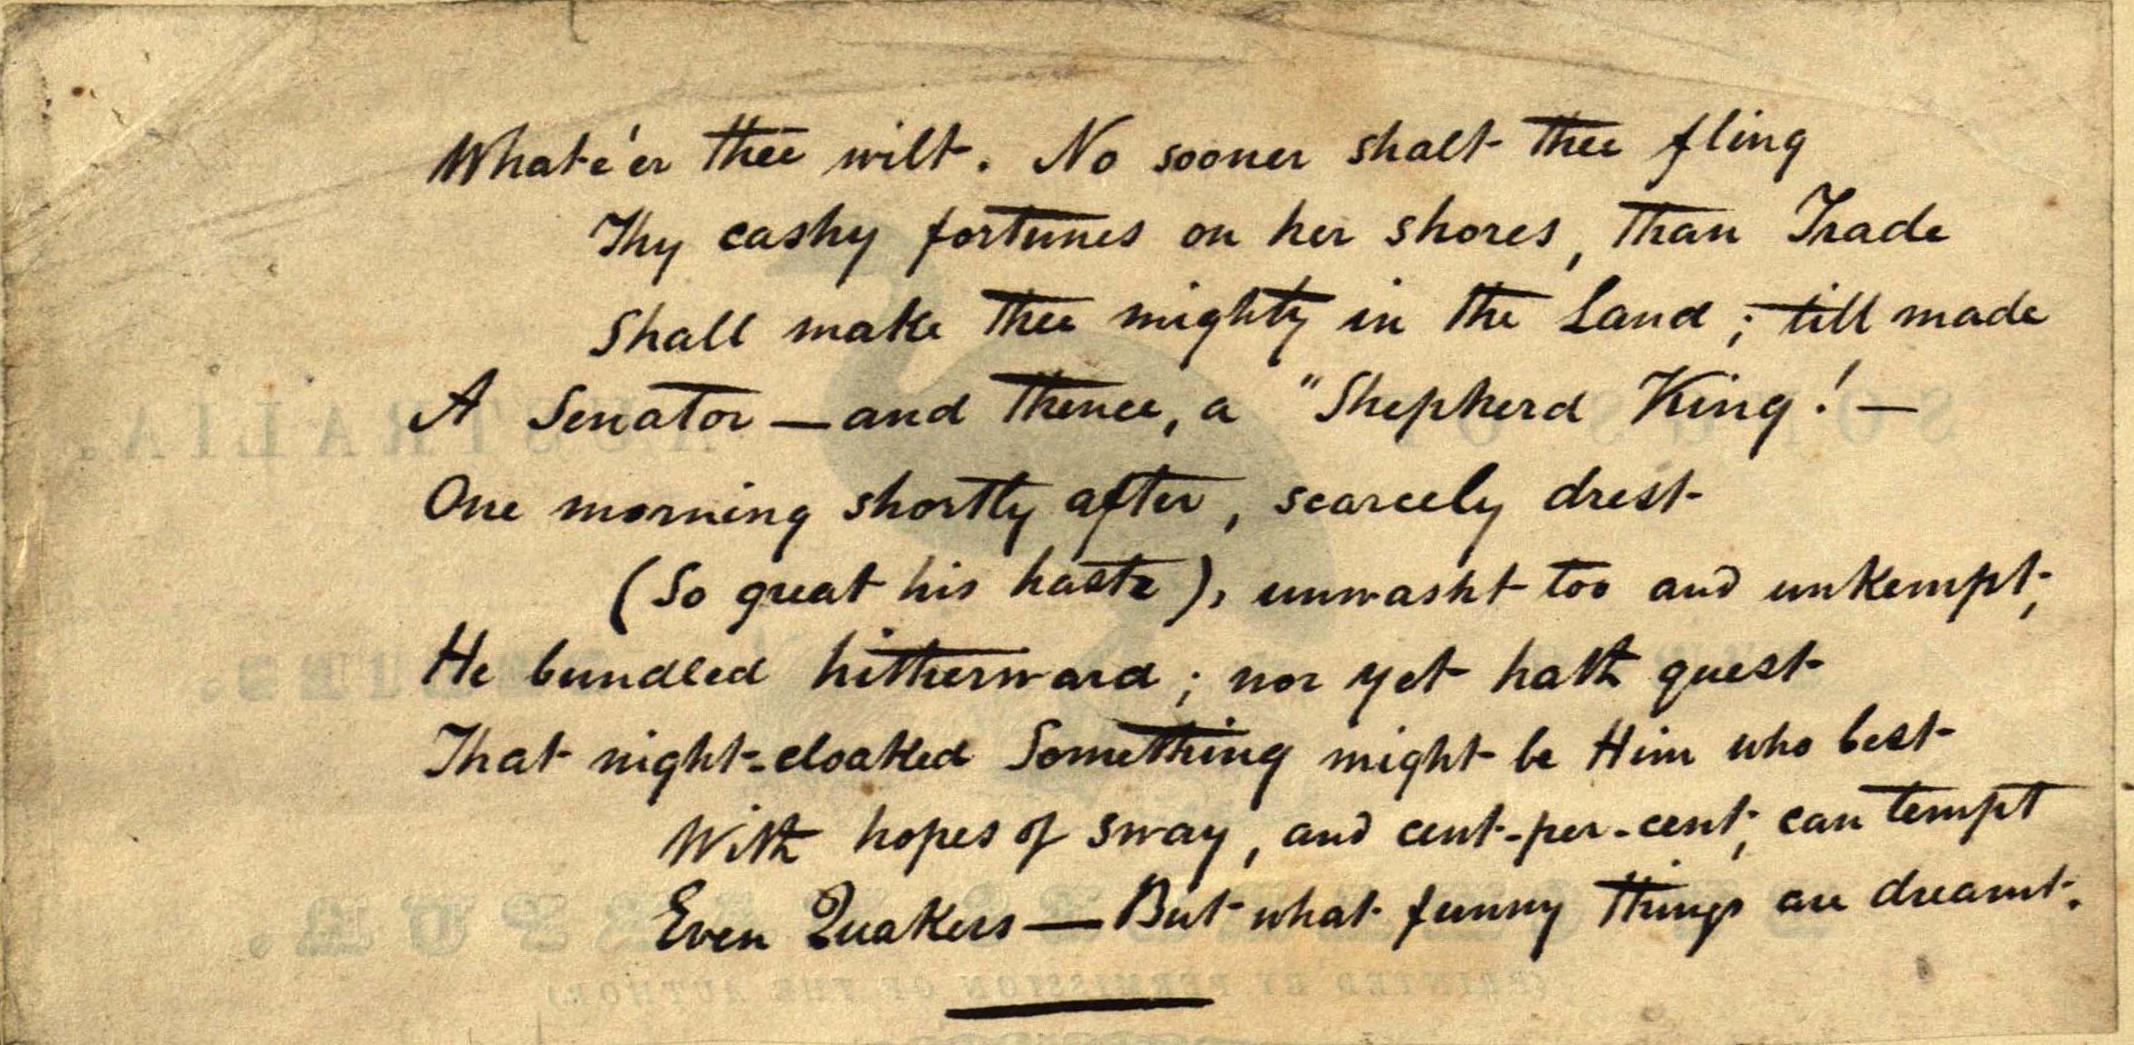 Whate'er thee wilt. No sooner shalt thee fling
Thy cashy fortunes on her shores, than Trade
Shall make thee mighty in the Land; till made
A Senator — and thence, a "Shepherd King! —
One morning shortly after, scarcely drest
(So great his haste), unwasht too and unkempt,
He bundled hitherward; nor yet hath guest
That night-cloaked Something might be Him who best
With hopes of sway, and cent-per-cent, can tempt
Even Quakers — But what funny things are dreamt.